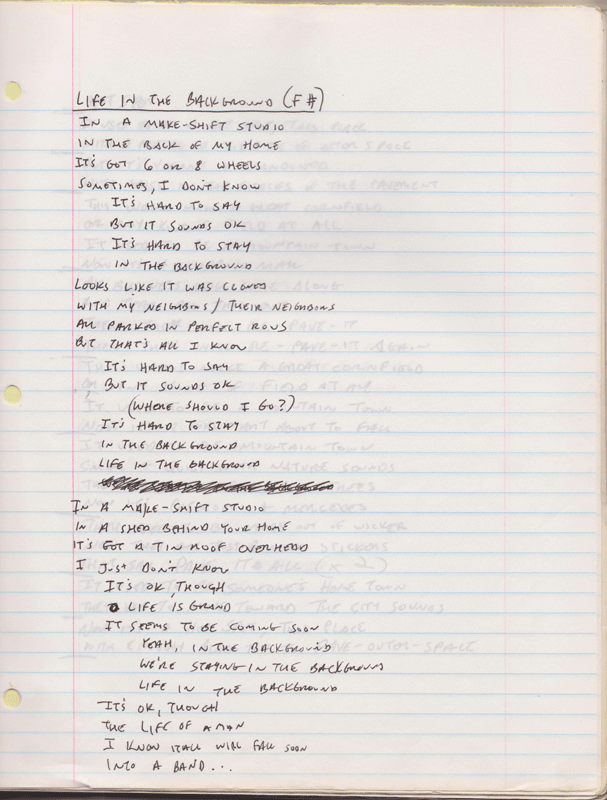 LIFE IN THE BACKGROUND (F#)
IN A MAKE-SHIFT STUDIO
IN THE BACK OF MY HOME
IT'S GOT 6 OR 8 WHEELS
SOMETIMES, I DON'T KNOW
IT'S HARD TO SAY
BUT IT SOUNDS OK
IT'S HARD TO STAY
IN THE BACKGROUND
LOOKS LIKE IT WAS CLONED
WITH MY NEIGHBORS / THEIR NEIGHBORS
ALL PARKED IN PERFECT ROWS
BUT THAT'S ALL I KNOW
IT'S HARD TO SAY
BUT IT SOUNDS OK
(WHERE SHOULD I GO?)
IT'S HARD TO STAY
IN THE BACKGROUND
LIFE IN THE BACKGROUND
IN A MAKE-SHIFT STUDIO
IN A SHED BEHIND YOUR HOME
IT'S GOT A TIN ROOF OVERHEAD
I JUST DON'T KNOW
IT'S OK, THOUGH
LIFE IS GRAND
IT SEEMS TO BE COMING SOON
YEAH, IN THE BACKGROUND
WE'RE STAYING IN THE BACKGROUND
LIFE IN THE BACKGROUND
IT'S OK, THOUGH
THE LIFE OF A MAN
I KNOW IT ALL WILL FALL SOON
INTO A BAND...